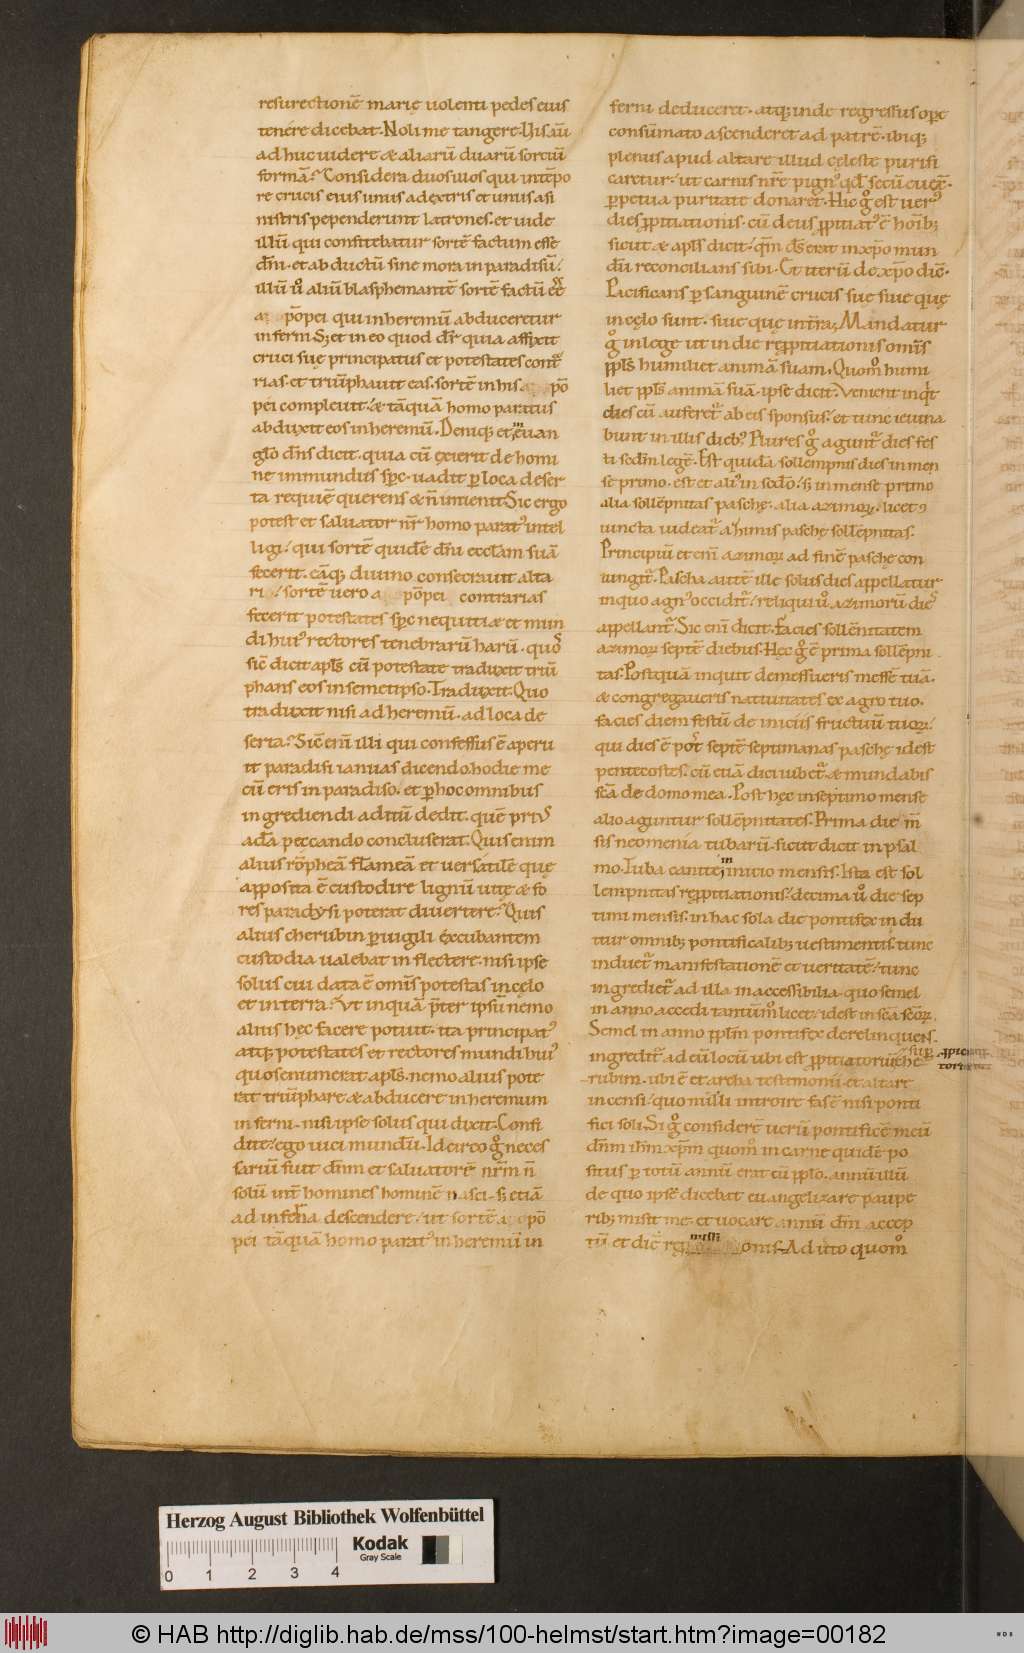 resurectionē marię uolenti pedes eius
tenére dicebat. Noli me tangere. Uis aū
adhuc uidere & aliarū duarū sortiū
formā? Considera duos illos qui intēpo
re crucis eius unus adextris et unus asi
nistris pependerunt latrones. et uide
illū qui confitebatur sortē factum esse
dn̄i. et abductū sine mora in paradisū;
illū ů aliū blasphemantē sortē factū eē
a pōpei qui inheremū abduceretur
inferni S; et in eo quod dr̄ quia affixit
cruci suę principatus et potestates cont
rias. et triūphauit eas. sortē in his a pō
pei compleuit. & tāquā homo paratus
abduxit eos in heremū. Deniq; et euan
glo dn̄s dicit. quia cū exierit de homi
ne immundus sp̄c. uadit p loca deser
ta requiē querens & n̄ inuenit. Sic ergo
potest et saluator nr̄ homo parat' intel
ligi. qui sortē quidē dn̄i eccl̄am suā
fecerit. eāq; diuino consecrauit alta
ri. sortē uero a pōpei contrarias
fecerit potestates sp̄c nequitiæ et mun
di hui' rectores tenebrarū harū. quos
sic̄ dicit apl̄s cū potestate traduxit triū
phans eos in semetipso. Traduxit. Quo
traduxit nisi ad heremū. ad loca de
serta? Sic̄ eni illi qui confessus ē aperu
it paradisi ianuas dicendo. hodie me
cū eris in paradiso. et p hoc omnibus
ingrediendi aditū dedit. quē pri'
adā peccando concluserat. Quis enim
alius rōpheā flāmeā et uersatilē quę
apposita ē custodire lignū uitę & fo
res paradysi poterat diuertere? Quis
alius cherubin puigili excubantem
custodia ualebat inflectere. nisi ipse
solus cui data ē omīs potestas in cęlo
et in terra? Vt inquā p̄ter ipsū nemo
alius hęc facere potuit. ita principat'
atq; potestates et rectores mundi hui'
quos enumerat apl̄s. nemo alius pote
rat triūphare & abducere in heremum
inferni. nisi ipse solus qui dixit. Confi
dite. ego uici mundū. Idcirco g̊ neces
sariū fuit dn̄m et saluatorē nr̄m n̄
solū int̄ homines hominē nasci. s; etiā
ad inferna descendere. ut sortē a pō
pei tāquā homo parat' in heremū in
ferni deduceret. atq; inde regressus ope
consūmato ascenderet ad patrē. ibiq;
plenus apud altare illud cęleste purifi
caretur. ut carnis nr̄e pign' qd̄ secū euex̄.
ppetua puritate donaret. Hic g̊ est uer'
dies ppitiationis. cū deus ppitiat' ē hoīb;
sicut & apl̄s dicit. qm̄ ds̄ erat in xp̄o mun
dū reconcilians sibi. Et iterū de xp̄o dic̄.
Pacificans p sanguinē crucis suę siue quę
in cęlo sunt. siue quę in tr̄a; Mandatur
g̊ in lege ut in die repropitiationis omīs
ppl̄s humiliet animā suam. Quom̊ humi
liet ppl̄s animā suā. ipse dicit. Venient inq̇t
dies cū auferet' ab eis sponsus. et tunc ieiuna
bunt in illis dieb'. Plures g̊ agunt' dies fes
ti sedm̄ legē. Est quidā sollempnis dies in men
se primo. est et ali' in sedo. s; in mense primo
alia sollēpnitas paschę. alia azimoꝝ. licet
iuncta uideat' azimis paschę sollēpnitas.
Principiū et eni azimoꝝ ad finē paschę con
iungit'. Pascha autē ille solus dies appellatur
in quo agn' occidit'. reliqui ů azimorū dies
appellant'. Sic eni dicit. Facies sollēnitatem
azimoꝝ septē diebus. Hęc g̊ ē prima sollēpni
tas. Postquā inquit demessueris messē tuā.
& congregaueris natiuitates ex agro tuo.
facies diem festū de iniciis fructuū tuoꝝ.
qui dies ē post septē septimanas paschę idest
pentecostes. cū etiā dici iubet' & mundabis
sc̄a de domo mea. Post hęc in septimo mense
alio aguntur sollēpnitates. Prima die m̄
sis neomenia tubarū. sicut dicit in psal
mo. Tuba canite in inicio mensis. Ista est sol
lempnitas repropitiationis. decima ů die sep
timi mensis. in hac sola die pontifex indu
itur omnib; pontificalib; uestimentis. tunc
induet' manifestationē et ueritatē. tunc
ingrediet' ad illa inaccessibilia. quo semel
in anno accedi tantūm̊ licet. idest in sc̄a sc̄oꝝ.
Semel in anno ppl̄m pontifex derelinquens
ingredit' ad eū locū ubi est ppitiatoriū. & sup che
rubim. ubi ē et archa testimonii. et altare
incensi. quo nulli introire fas ē nisi ponti
fici soli. Si g̊ considerē uerū pontificē meū
dn̄m ihm̄ xp̄m quom̊ in carne quidē po
situs p totū annū erat cū pplo. annū illū
de quo ipse dicebat euangelizare paupe
rib; misit me. et uocare annū dn̄i accep
tū. et diē remissionis. Aduto quom̊
Herzog August Bibliothek Wolfenbüttel
Kodak
Gray Scale
0 1 2 3 4
© HAB http://diglib.hab.de/mss/100-helmst/start.htm?image=00182